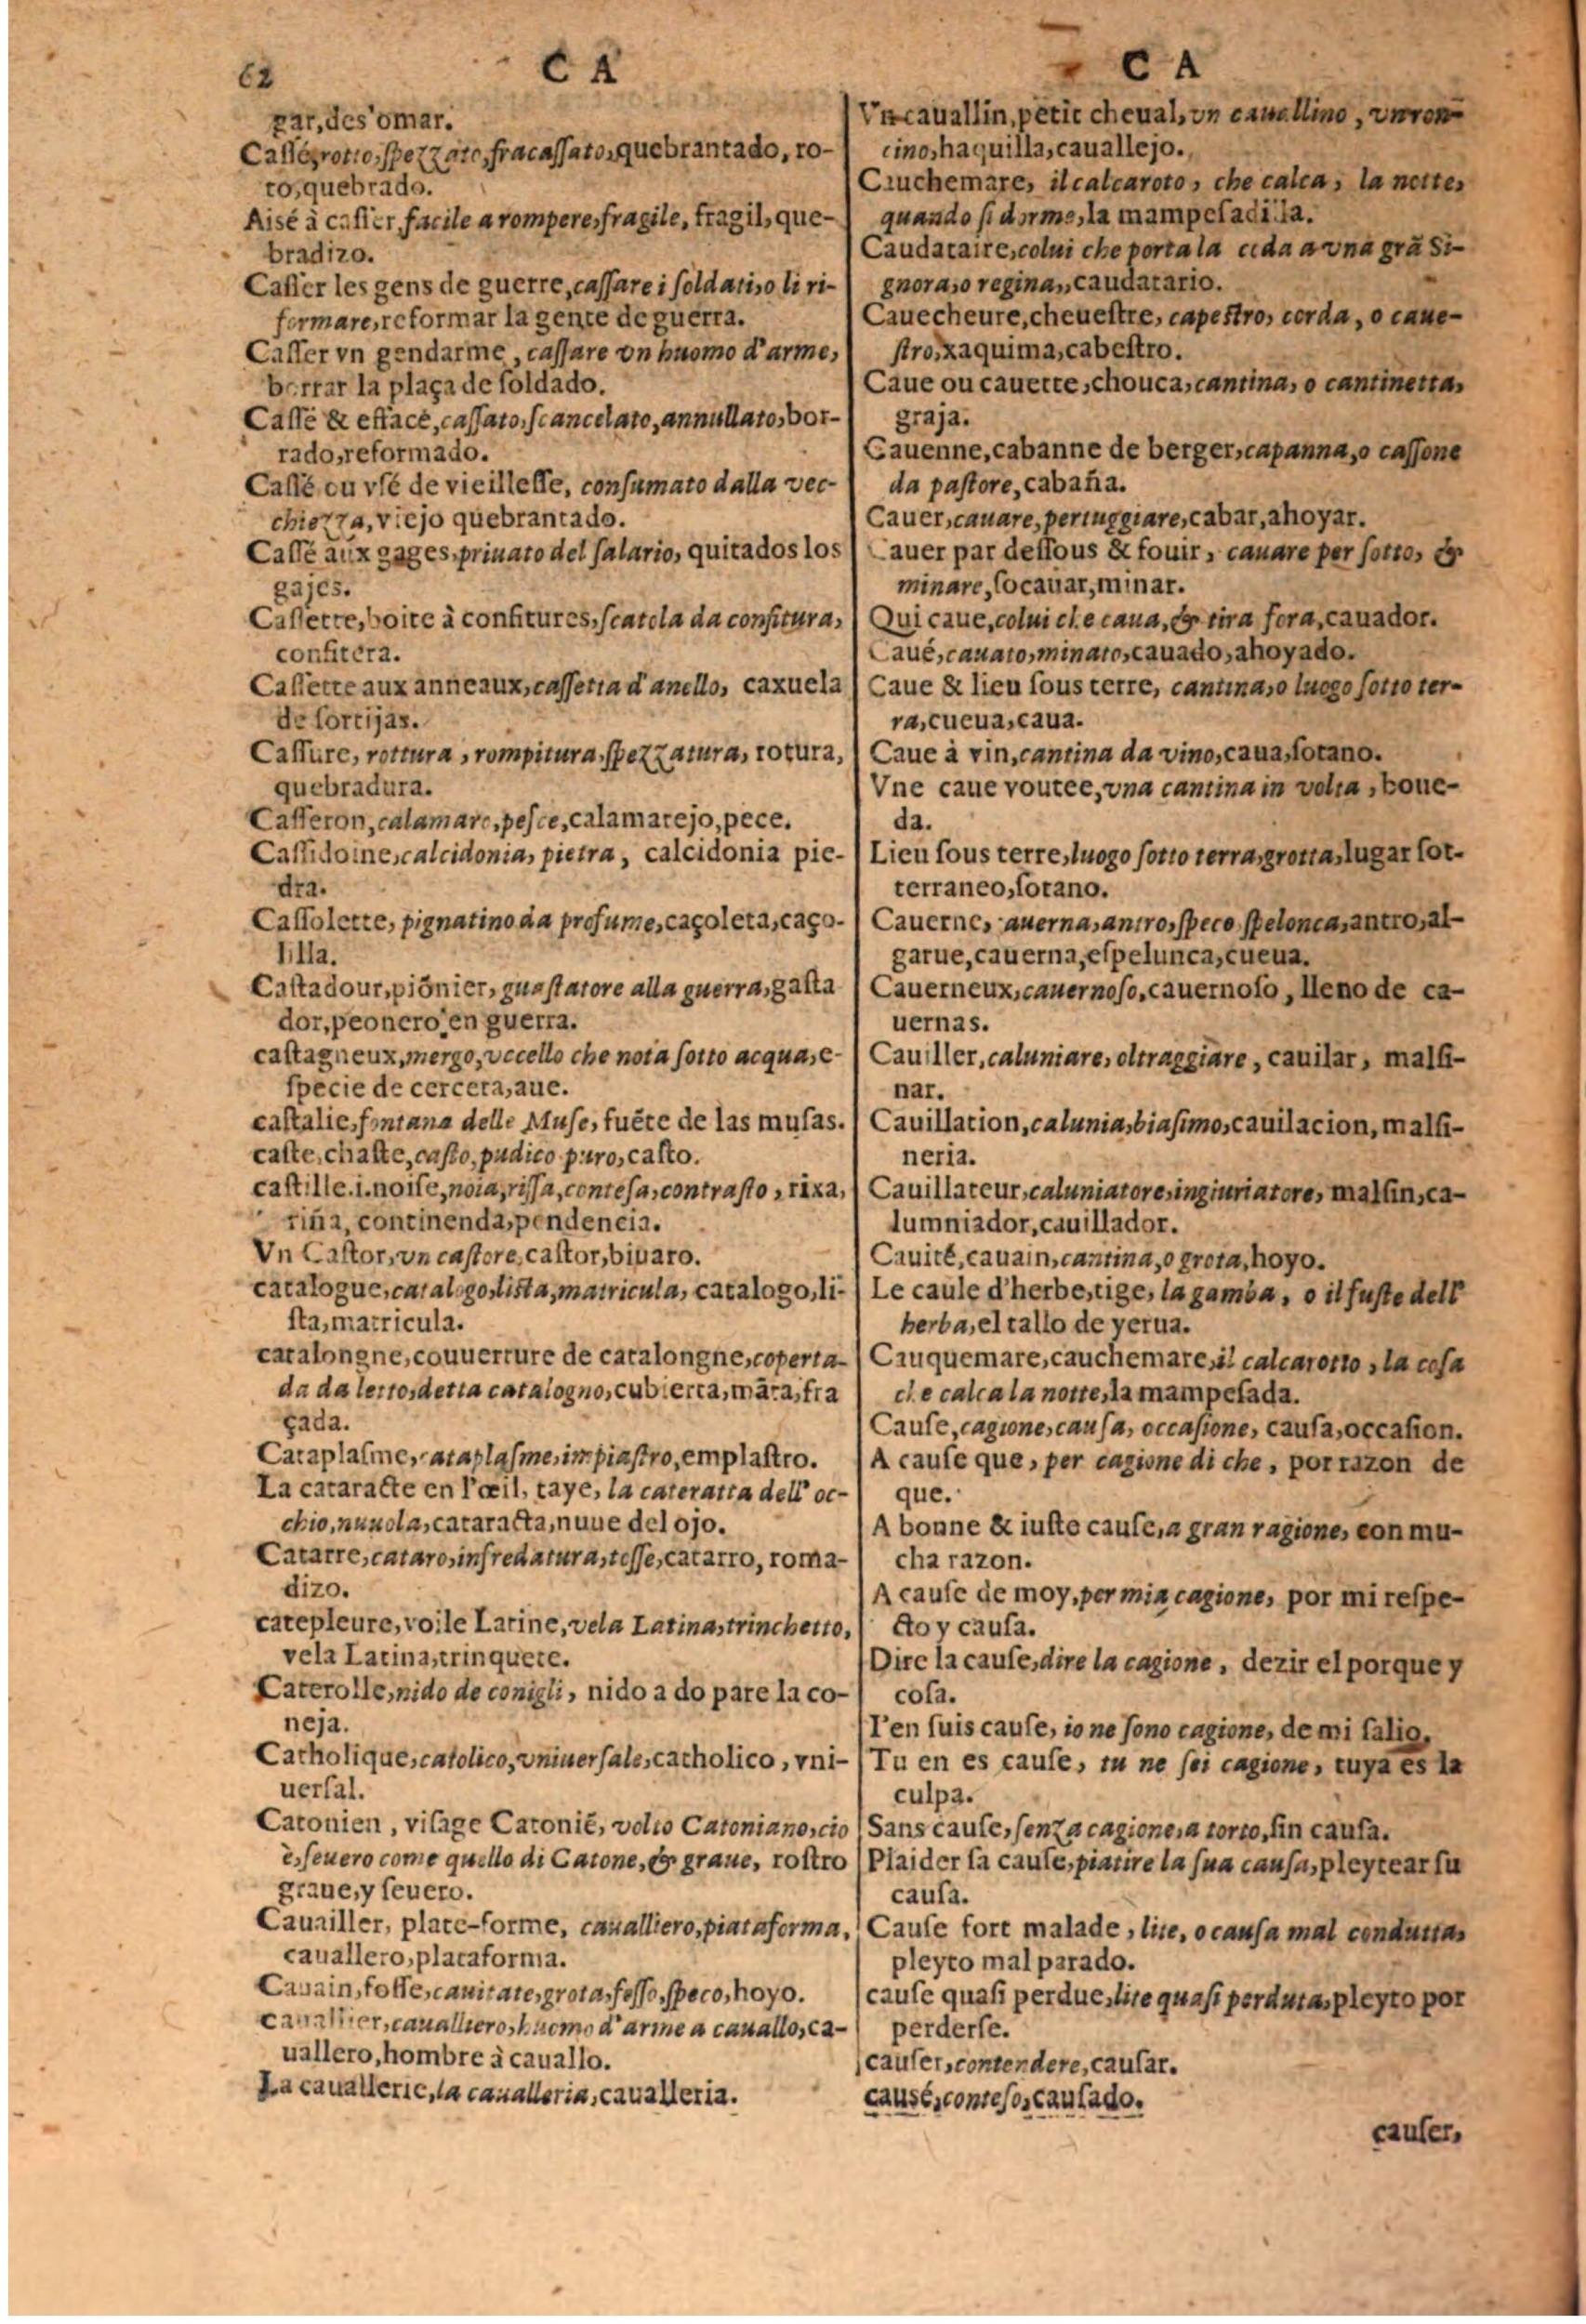 62
C A
gar, des'omar.
Cassé, rotto, spezzato, fracassato, quebrantado, ro-
to, quebrado.
Aisé à casser, facile a rompere, fragile, fragil, que-
bradizo.
Casser les gens de guerre, cassare i soldati, o li ri-
formare, reformar la gente de guerra.
Casser vn gendarme, cassare vn huomo d'arme,
borrar la plaça de soldado.
Cassé & effacé, cassato, scancelato, annullato, bor-
rado, reformado.
Cassé ou vsé de vieillesse, consumato dalla vec-
chiezza, viejo quebrantado.
Cassé aux gages, priuato del salario, quitados los
gajes.
Cassette, boite à confitures, scatola da confitura,
confitera.
Cassette aux anneaux, cassetta d'anello, caxuela
de sortijas.
Cassure, rottura, rompitura, spezzatura, rotura,
quebradura.
Casseron, calamaro, pesce, calamarejo, pece.
Cassidoine, calcidonia, pietra, calcidonia pie-
dra.
Cassolette, pignatino da profume, caçoleta, caço-
lilla.
Castadour, piōnier, guastatore alla guerra, gasta
dor, peonero en guerra.
castagneux, mergo, vccello che nota sotto acqua, e-
specie de cerceta, aue.
castalie, fontana delle Muse, fuēte de las musas.
caste, chaste, casto, pudico puro, casto.
castille. i. noise, noia, rissa, contesa, contrasto, rixa,
riña, continenda, pendencia.
Vn Castor, vn castore, castor, biuaro.
catalogue, catalogo, lista, matricula, catalogo, li-
sta, matricula.
catalongne, couuerture de catalongne, coperta-
da da letto, detta catalogno, cubierta, māta, fra
çada.
Cataplasme, cataplasme, impiastro, emplastro.
La cataracte en l'œil, taye, la cateratta dell' oc-
chio, nuuola, cataracta, nuue del ojo.
Catarre, cataro, infredatura, tosse, catarro, roma-
dizo.
catepleure, voile Latine, vela Latina, trinchetto,
vela Latina, trinquete.
Caterolle, nido de conigli, nido a do pare la co-
neja.
Catholique, catolico, vniuersale, catholico, vni-
uersal.
Catonien, visage Catoniē, volto Catoniano, cio
è, seuero come quello di Catone, & graue, rostro
graue, y seuero.
Cauailler, plate-forme, caualliero, piataforma,
cauallero, plataforma.
Cauain, fosse, cauitate, grota, fosso, speco, hoyo.
cauallier, caualliero, huomo d'arme a cauallo, ca-
uallero, hombre à cauallo.
La cauallerie, la caualleria, caualleria.
C A
Vn cauallin, petit cheual, vn cauallino, vn ron-
cino, haquilla, cauallejo.
Cauchemare, il calcaroto, che calca, la notte,
quando si dorme, la mampesadilla.
Caudataire, colui che porta la coda a vna grā Si-
gnora, o regina, caudatario.
Cauecheure, cheuestre, capestro, corda, o caue-
stro, xaquima, cabestro.
Caue ou cauette, chouca, cantina, o cantinetta,
graja.
Cauenne, cabanne de berger, capanna, o cassone
da pastore, cabaña.
Cauer, cauare, pertuggiare, cabar, ahoyar.
Cauer par dessous & fouir, cauare per sotto, &
minare, socauar, minar.
Qui caue, colui che caua, & tira fora, cauador.
Caué, cauato, minato, cauado, ahoyado.
Caue & lieu sous terre, cantina, o luogo sotto ter-
ra, cueua, caua.
Caue à vin, cantina da vino, caua, sotano.
Vne caue voutee, vna cantina in volta, boue-
da.
Lieu sous terre, luogo sotto terra, grotta, lugar sot-
terraneo, sotano.
Cauerne, cauerna, antro, speco spelonca, antro, al-
garue, cauerna, espelunca, cueua.
Cauerneux, cauernoso, cauernoso, lleno de ca-
uernas.
Cauiller, caluniare, oltraggiare, cauilar, malsi-
nar.
Cauillation, calunia, biasimo, cauilacion, malsi-
neria.
Cauillateur, caluniatore, ingiuriatore, malsin, ca-
lumniador, cauillador.
Cauité, cauain, cantina, o grota, hoyo.
Le caule d'herbe, tige, la gamba, o il fuste dell'
herba, el tallo de yerua.
Cauquemare, cauchemare, il calcarotto, la cosa
che calca la notte, la mampesada.
Cause, cagione, causa, occasione, causa, occasion.
A cause que, per cagione di che, por razon de
que.
A bonne & iuste cause, a gran ragione, con mu-
cha razon.
A cause de moy, per mia cagione, por mi respe-
cto y causa.
Dire la cause, dire la cagione, dezir el porque y
cosa.
I'en suis cause, io ne sono cagione, de mi salio.
Tu en es cause, tu ne sei cagione, tuya es la
culpa.
Sans cause, senza cagione, a torto, sin causa.
Plaider sa cause, piatire la sua causa, pleytear su
causa.
Cause fort malade, lite, o causa mal condutta,
pleyto mal parado.
cause quasi perdue, lite quasi perduta, pleyto por
perderse.
causer, contendere, causar.
causé, conteso, causado.
causer,